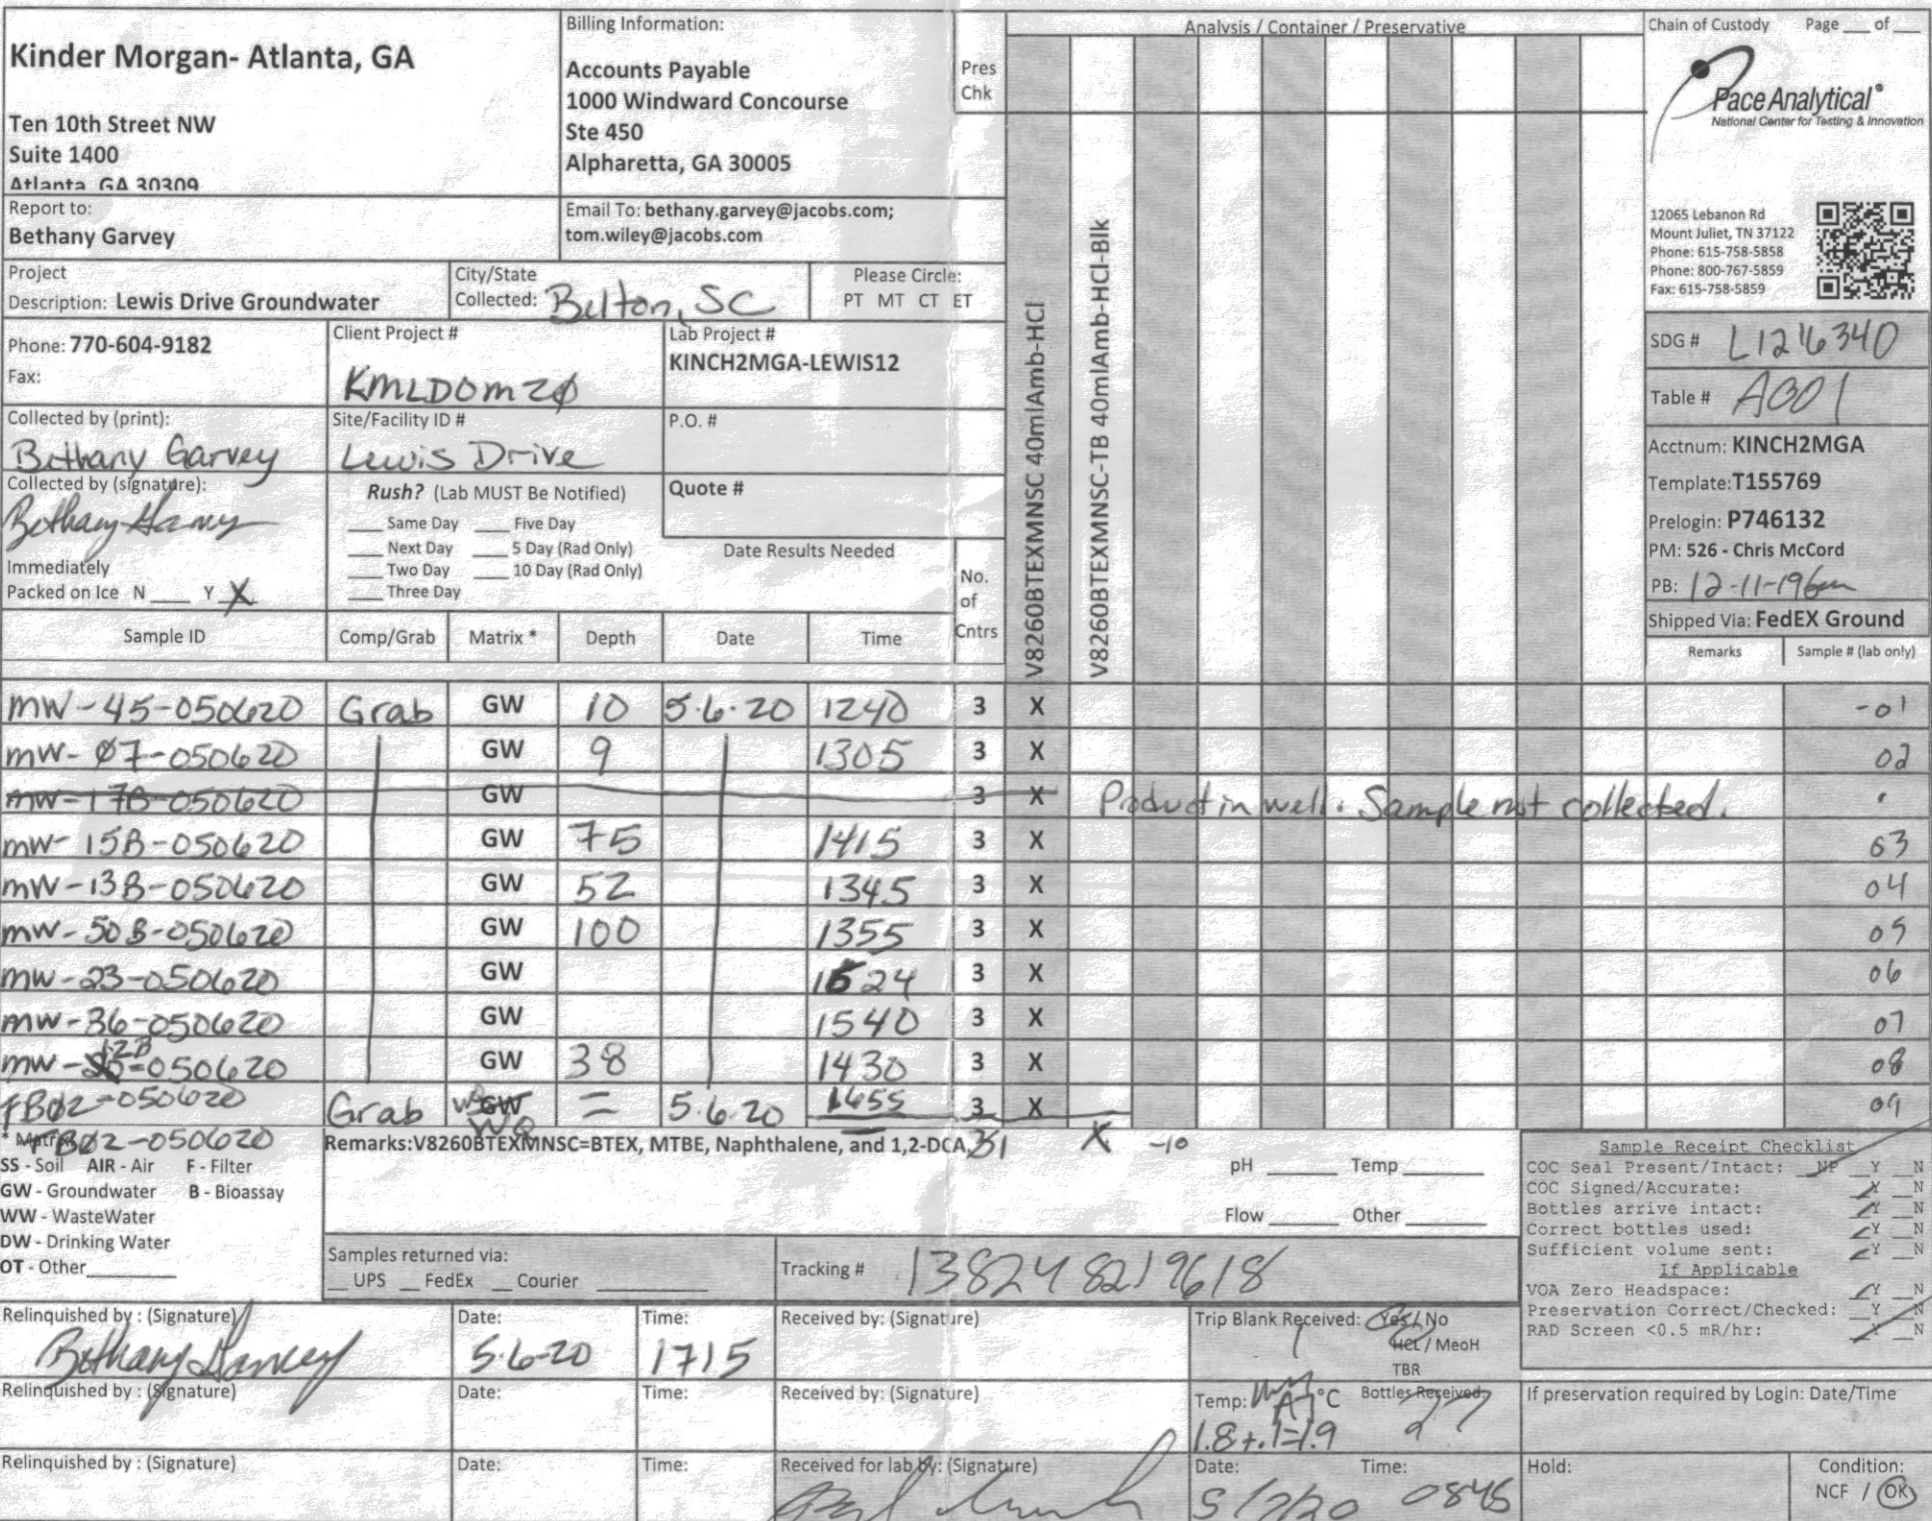 Kinder Morgan- Atlanta, GA
Ten 10th Street NW
Suite 1400
Atlanta, GA 30309
Billing Information:
Accounts Payable
1000 Windward Concourse
Ste 450
Alpharetta, GA 30005
Pres
Chk
Analysis / Container / Preservative
Chain of Custody Page ___ of ___
Pace Analytical®
National Center for Testing & Innovation
12065 Lebanon Rd
Mount Juliet, TN 37122
Phone: 615-758-5858
Phone: 800-767-5859
Fax: 615-758-5859
Report to:
Bethany Garvey
Email To: bethany.garvey@jacobs.com;
tom.wiley@jacobs.com
Project
Description: Lewis Drive Groundwater
City/State
Collected: Belton, SC
Please Circle:
PT MT CT ET
Phone: 770-604-9182
Fax:
Client Project #
KMLDOM2Ø
Lab Project #
KINCH2MGA-LEWIS12
Collected by (print):
Bethany Garvey
Site/Facility ID #
Lewis Drive
P.O. #
Collected by (signature):
Bethany Garvey
Rush? (Lab MUST Be Notified)
___ Same Day ___ Five Day
___ Next Day ___ 5 Day (Rad Only)
___ Two Day ___ 10 Day (Rad Only)
___ Three Day
Quote #
Date Results Needed
Immediately
Packed on Ice N ___ Y X
No.
of
Cntrs
V8260BTEXMNSC 40mlAmb-HCl
V8260BTEXMNSC-TB 40mlAmb-HCl-Blk
SDG # L1216340
Table # A001
Acctnum: KINCH2MGA
Template: T155769
Prelogin: P746132
PM: 526 - Chris McCord
PB: 12-11-19
Shipped Via: FedEX Ground
Remarks Sample # (lab only)
Sample ID Comp/Grab Matrix * Depth Date Time
MW-45-050620 Grab GW 10 5.6.20 1240 3 X -01
MW-Ø7-050620 GW 9 1305 3 X 02
MW-17B-050620 GW 3 X Product in well. Sample not collected.
MW-15B-050620 GW 75 1415 3 X 03
MW-13B-050620 GW 52 1345 3 X 04
MW-50B-050620 GW 100 1355 3 X 05
MW-23-050620 GW 1524 3 X 06
MW-36-050620 GW 1540 3 X 07
MW-12B-050620 GW 38 1430 3 X 08
FBØ2-050620 Grab GW WQ = 5.6.20 1655 3 X 09
TBØ2-050620 X -10
* Matrix
SS - Soil AIR - Air F - Filter
GW - Groundwater B - Bioassay
WW - WasteWater
DW - Drinking Water
OT - Other
Remarks:V8260BTEXMNSC=BTEX, MTBE, Naphthalene, and 1,2-DCA,
pH ___ Temp ___
Flow ___ Other ___
Samples returned via:
__ UPS __ FedEx __ Courier
Tracking # 138248219618
Sample Receipt Checklist
COC Seal Present/Intact: NP Y N
COC Signed/Accurate: Y N
Bottles arrive intact: Y N
Correct bottles used: Y N
Sufficient volume sent: Y N
If Applicable
VOA Zero Headspace: Y N
Preservation Correct/Checked: Y N
RAD Screen <0.5 mR/hr: Y N
Relinquished by : (Signature)
Bethany Garvey
Date:
5-6-20
Time:
1715
Received by: (Signature)
Trip Blank Received: Yes / No
1
HCL / MeoH
TBR
Relinquished by : (Signature)
Date:
Time:
Received by: (Signature)
Temp: °C
1.8+.1=1.9
Bottles Received:
27
If preservation required by Login: Date/Time
Relinquished by : (Signature)
Date:
Time:
Received for lab by: (Signature)
Date:
5/7/20
Time:
0845
Hold:
Condition:
NCF / OK